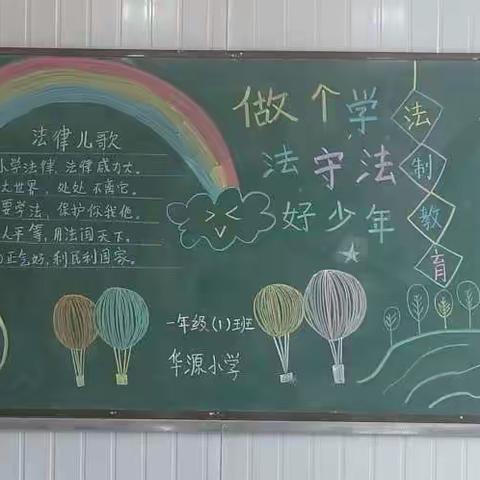 做个学
法守法
好少年
法制教育
法律儿歌
小学法律,法律威力大。
大世界,处处不离它。
要学法,保护你我他。
人平等,用法闯天下。
正气好,利民利国家。
一年级(1)班
华源小学